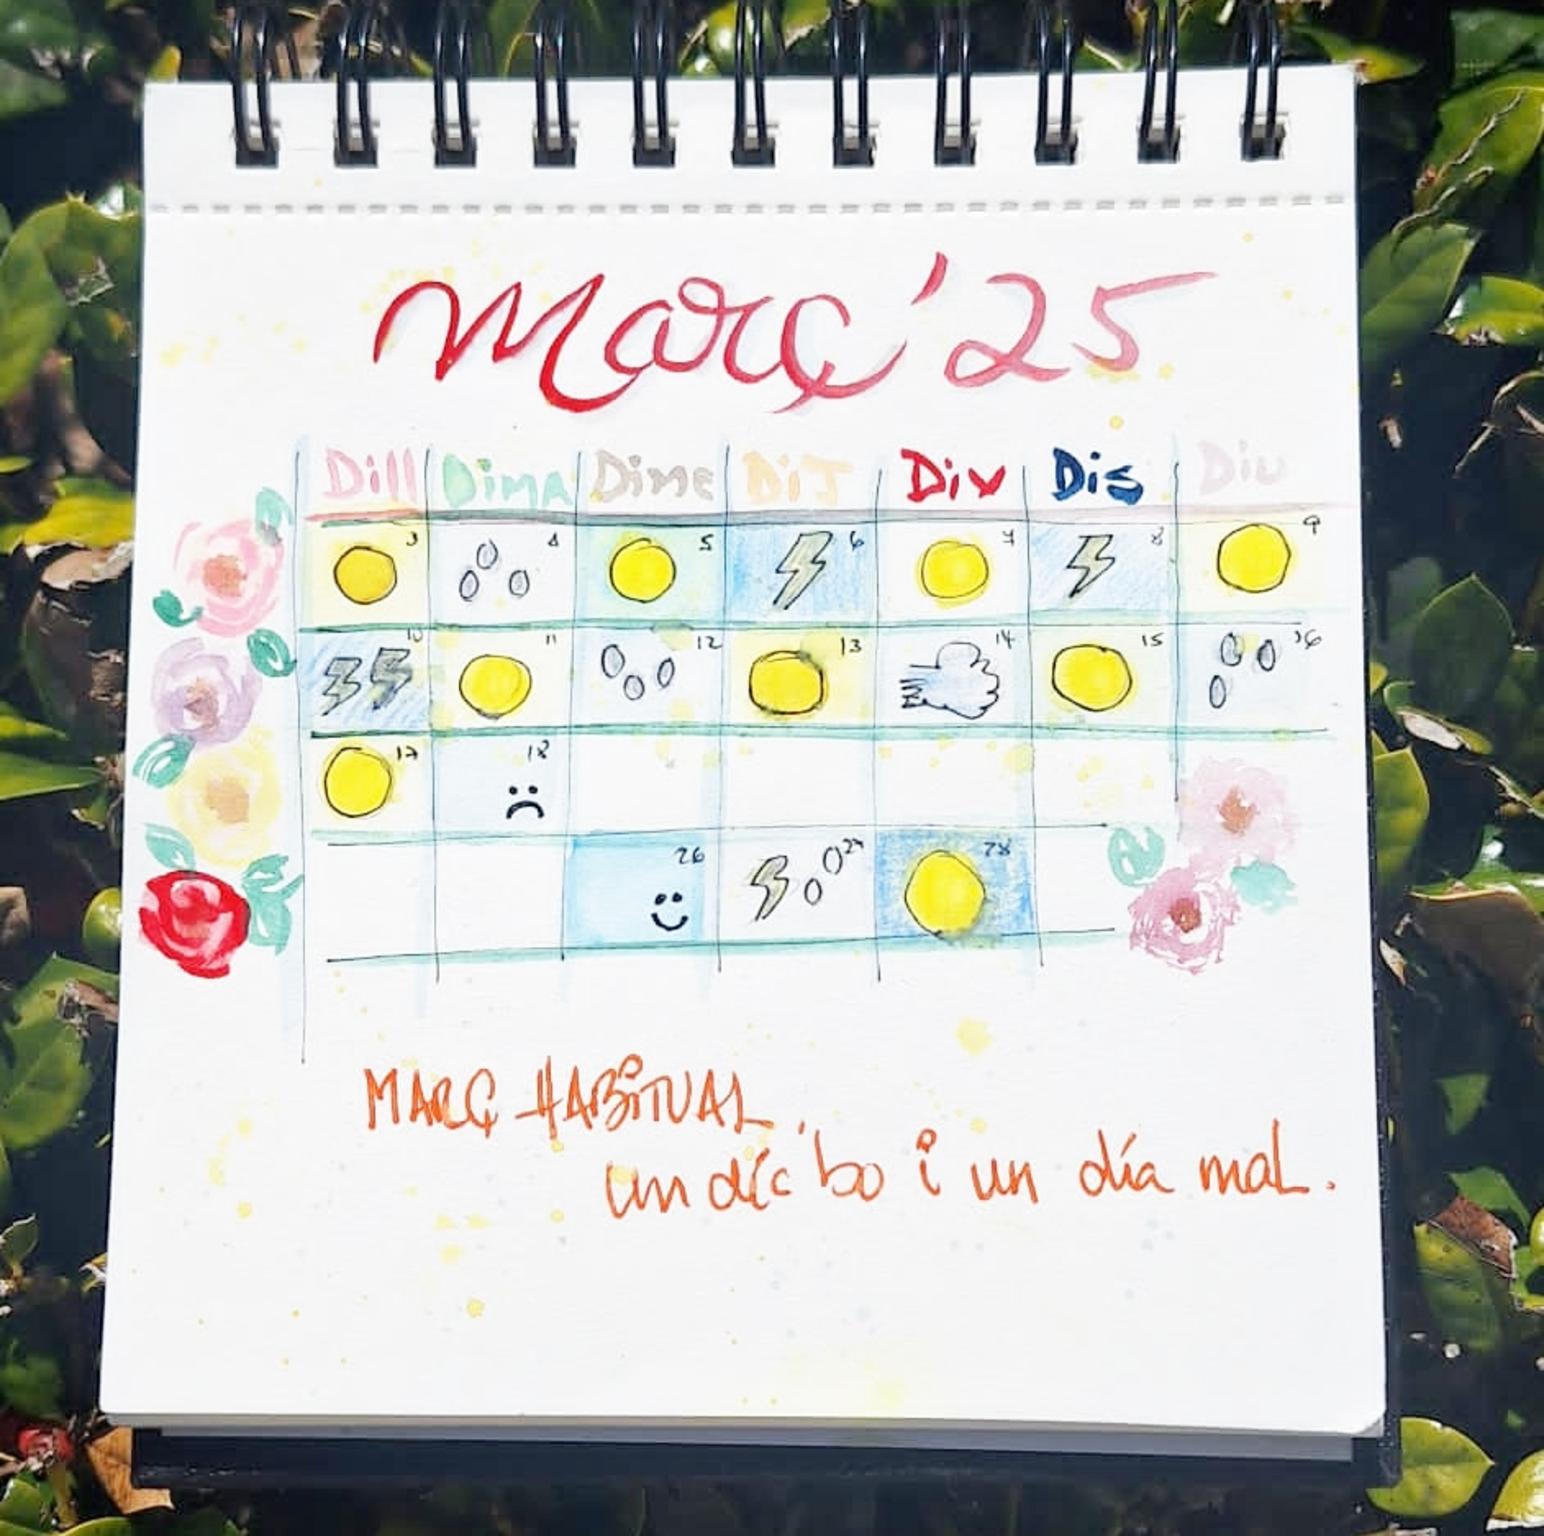 Març '25
Dill Dima Dime DiJ Div Dis Diu
3 4 5 6 7 8 9
10 11 12 13 14 15 16
17 18
26 27 28
MARÇ HABiTUAL.
un dia bo i un día mal.